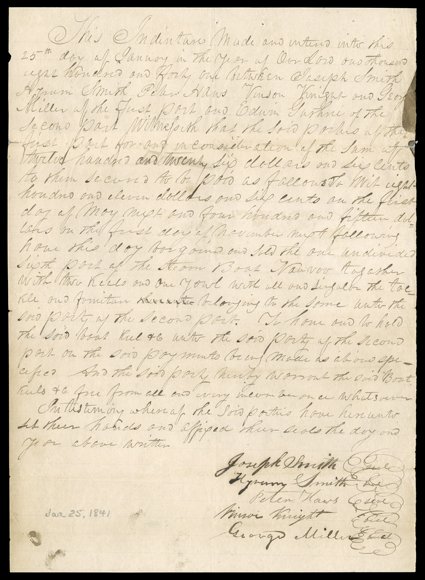 This Indenture Made and enterd into this
25th day of January in the Year of Our Lord one thousand
eight hundred and Forty one Between Joseph Smith
Hyrum Smith Peter Haws Vinson Knight and Geo
Miller of the First Part and Edwin Guthrie of the
Second Part Witnesseth that the Said Parties of the
First Part for and in consideration of the Sum of
twelve hundred and twenty Six dollars and Six Cents
to them secured to be paid as follows To Wit eight
hundred and eleven dollars and Six cents on the first
day of May Next and four hundred and fifteen dol
lars on the first day of November next following
have this day bargained and Sold the one undivided
Sixth part of the Steam Boat Nauvoo together
With two Keels and one Yawl with all and Singular the tac
kle and furniture belonging to the Same unto the
Said party of the Second part. To have and to hold
the Said Boat Keel &c unto the Said Party of the Second
part on the Said payments being made as above spe-
cified And the Said party hereby warrant the Said Boat
Keels &c free from all and every incumberance Whatsoever
In testimony where of the Said parties have hereunto
Set their hands and affixed their Seals the day and
year above written
Joseph Smith Seal
Hyrum Smith Seal
Peter Haws Seal
Vinson Knight Seal
George Miller Seal
Jan 25, 1841